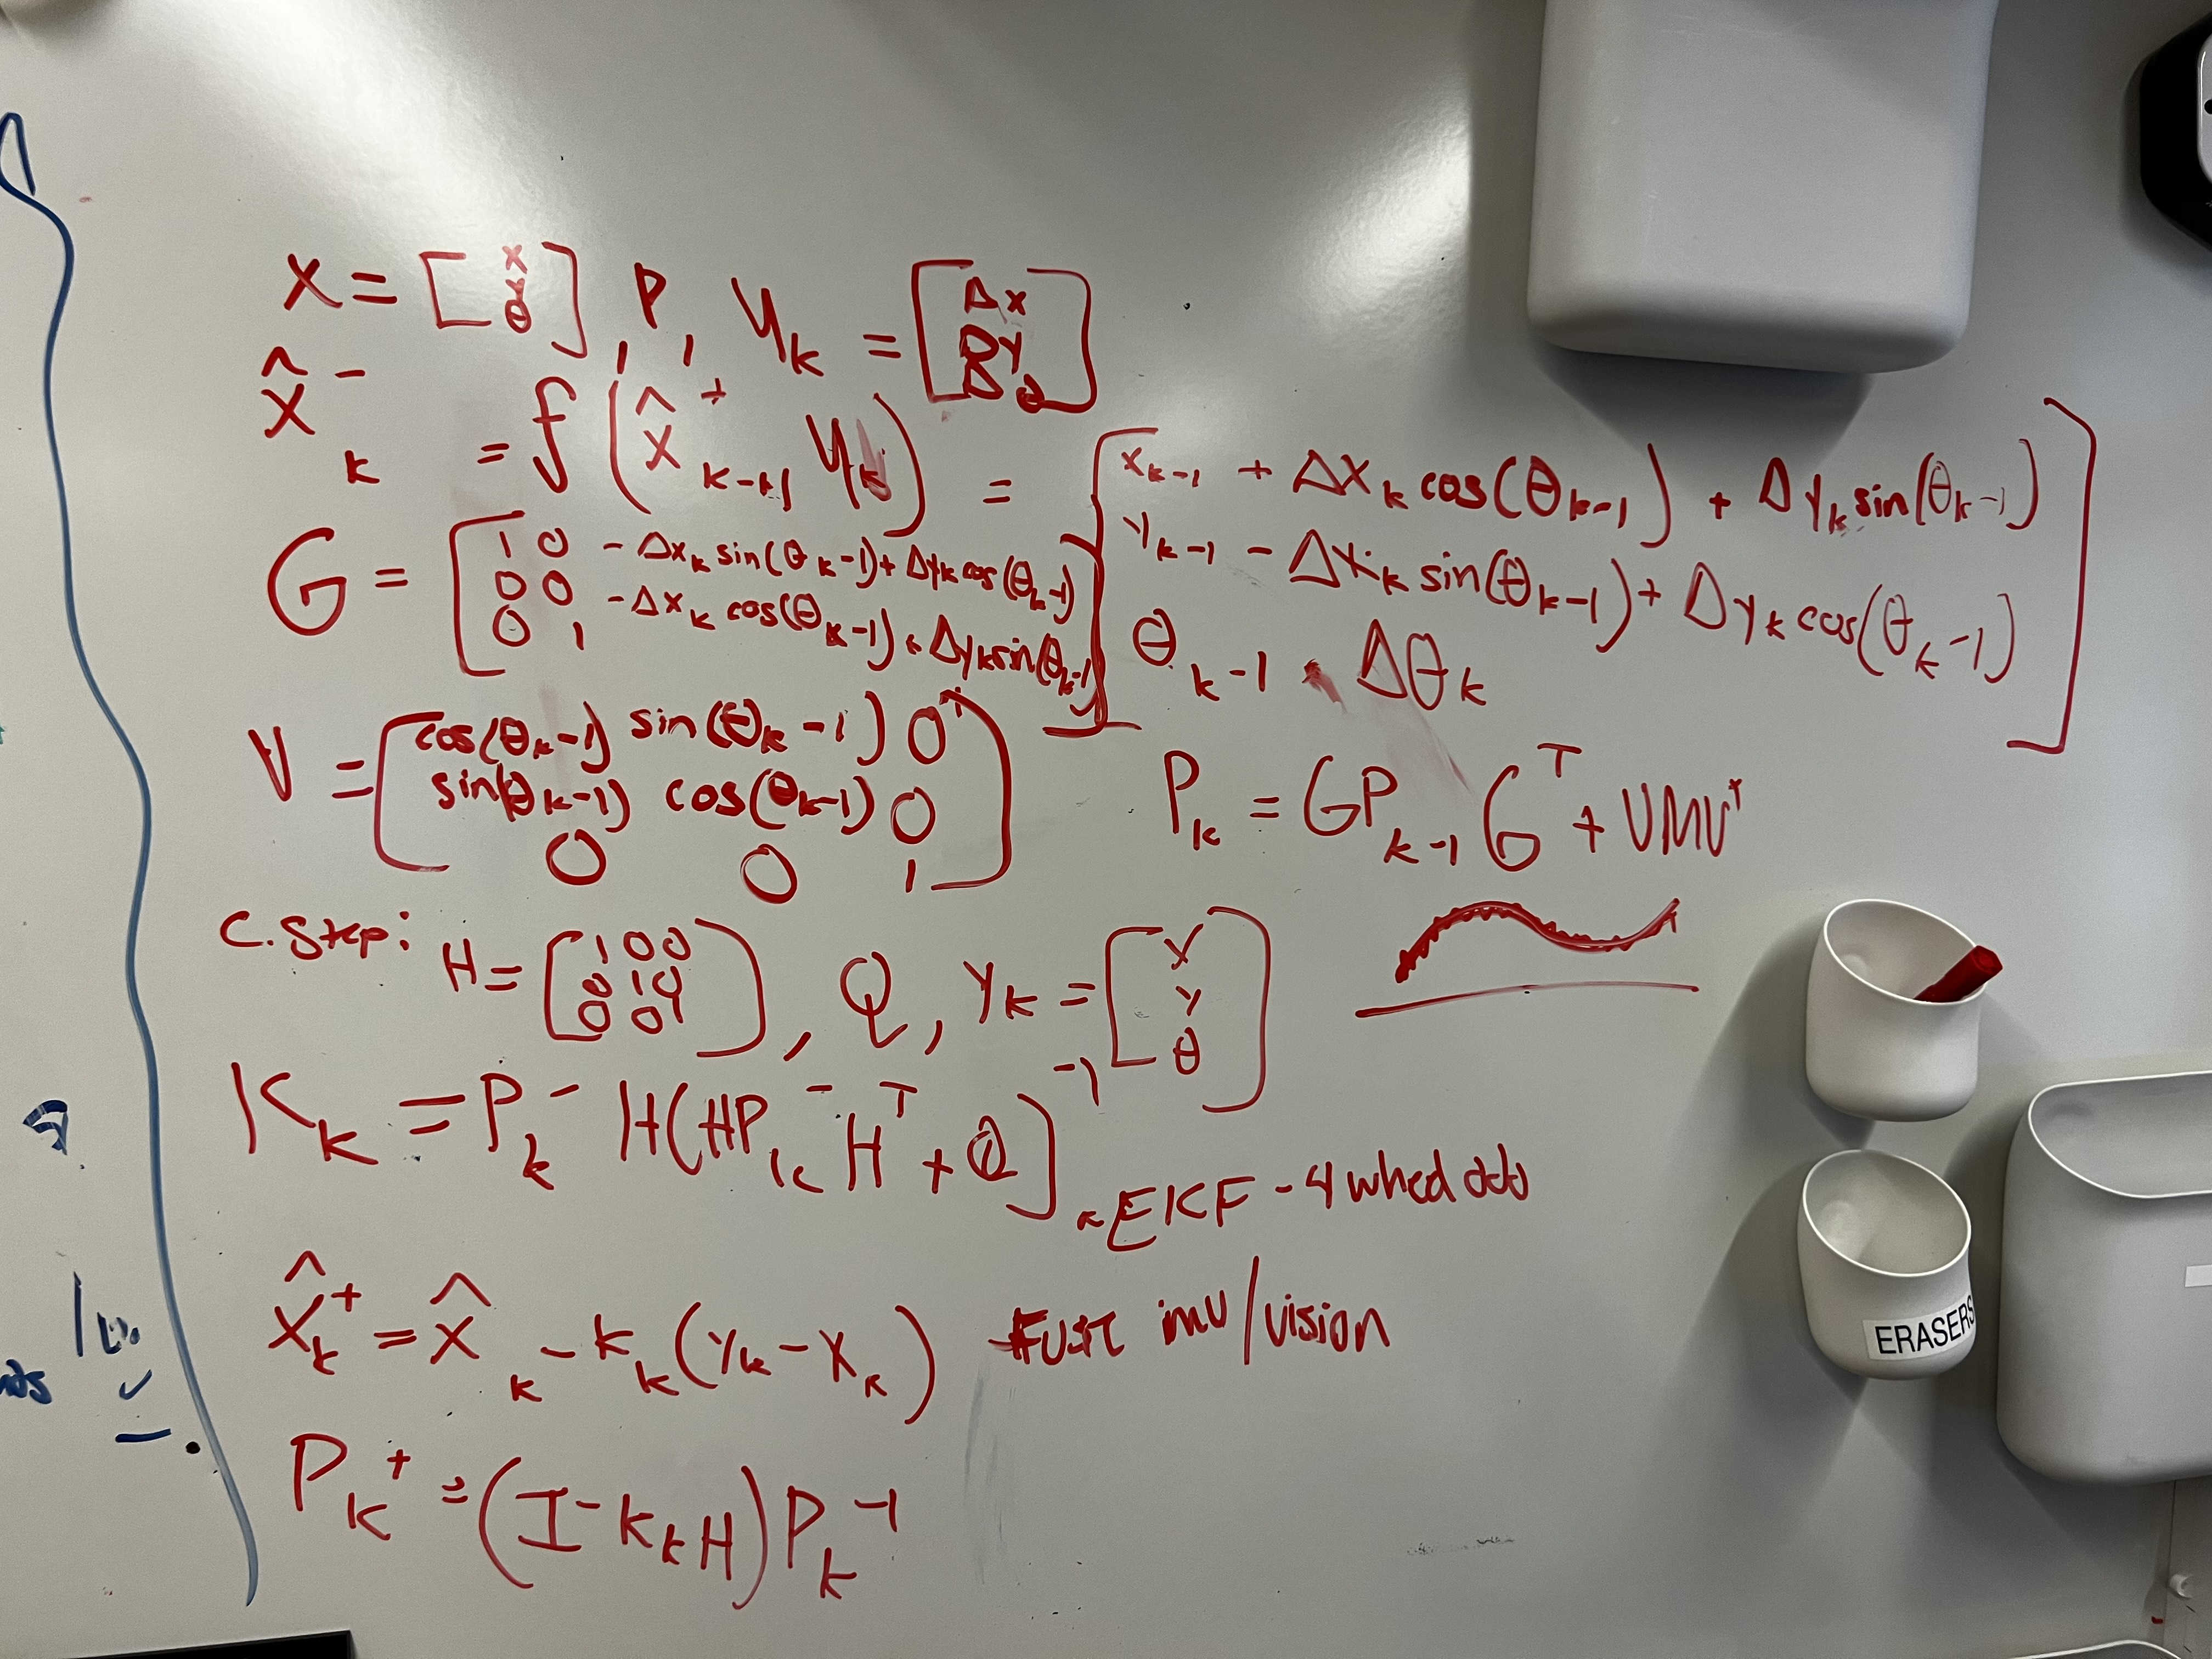 X = [x y θ], P, u_k = [Δx Δy Δθ]
x̂⁻_k = f(x̂⁺_{k-1} u_k) = [x_{k-1} + Δx_k cos(θ_{k-1}) + Δy_k sin(θ_{k-1})
y_{k-1} - Δx_k sin(θ_{k-1}) + Δy_k cos(θ_{k-1})
θ_{k-1} + Δθ_k]
G = [1 0 -Δx_k sin(θ_{k-1}) + Δy_k cos(θ_{k-1})
0 0 -Δx_k cos(θ_{k-1}) + Δy_k sin(θ_{k-1})
0 1]
V = [cos(θ_{k-1}) sin(θ_{k-1}) 0
sin(θ_{k-1}) cos(θ_{k-1}) 0
0 0 1]
P_k = G P_{k-1} G^T + V M V^T
C. Step: H = [1 0 0
0 1 0
0 0 1], Q, y_k = [x y θ]
K_k = P_k⁻ H(H P_k⁻ H^T + Q)^{-1}
EKF - 4 wheel odo
x̂⁺_k = x̂_k - K_k(y_k - x_k)
imu/vision
P_k⁺ = (I - K_k H) P_k^{-1}
ERASERS